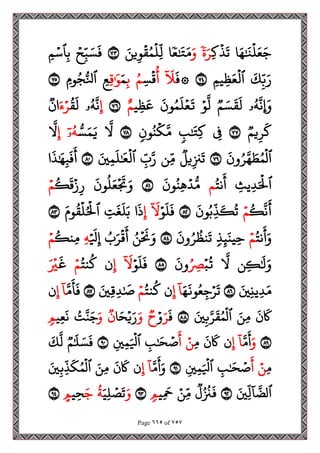 جَعَلْنَٰهَا تَذْكِرَةً وَمَتَٰعًا لِّلْمُقْوِينَ ٧٣ فَسَبِّحْ بِٱسْمِ
رَبِّكَ ٱلْعَظِيمِ ٧٤ ۞ فَلَآ أُقْسِمُ بِمَوَٰقِعِ ٱلنُّجُومِ ٧٥
وَإِنَّهُۥ لَقَسَمٌ لَّوْ تَعْلَمُونَ عَظِيمٌ ٧٦ إِنَّهُۥ لَقُرْءَانٌ
كَرِيمٌ ٧٧ فِى كِتَٰبٍ مَّكْنُونٍ ٧٨ لَّا يَمَسُّهُۥٓ إِلَّا
ٱلْمُطَهَّرُونَ ٧٩ تَنزِيلٌ مِّن رَّبِّ ٱلْعَٰلَمِينَ ٨٠ أَفَبِهَٰذَا
ٱلْحَدِيثِ أَنتُم مُّدْهِنُونَ ٨١ وَتَجْعَلُونَ رِزْقَكُمْ
أَنَّكُمْ تُكَذِّبُونَ ٨٢ فَلَوْلَآ إِذَا بَلَغَتِ ٱلْحُلْقُومَ ٨٣
وَأَنتُمْ حِينَئِذٍ تَنظُرُونَ ٨٤ وَنَحْنُ أَقْرَبُ إِلَيْهِ مِنكُمْ
وَلَٰكِن لَّا تُبْصِرُونَ ٨٥ فَلَوْلَآ إِن كُنتُمْ غَيْرَ
مَدِينِينَ ٨٦ تَرْجِعُونَهَآ إِن كُنتُمْ صَٰدِقِينَ ٨٧ فَأَمَّآ إِن
كَانَ مِنَ ٱلْمُقَرَّبِينَ ٨٨ فَرَوْحٌ وَرَيْحَانٌ وَجَنَّتُ نَعِيمٍ
٨٩ وَأَمَّآ إِن كَانَ مِنْ أَصْحَٰبِ ٱلْيَمِينِ ٩٠ فَسَلَٰمٌ لَّكَ
مِنْ أَصْحَٰبِ ٱلْيَمِينِ ٩١ وَأَمَّآ إِن كَانَ مِنَ ٱلْمُكَذِّبِينَ
ٱلضَّآلِّينَ ٩٢ فَنُزُلٌ مِّنْ حَمِيمٍ ٩٣ وَتَصْلِيَةُ جَحِيمٍ ٩٤
Page ٦٦٥ of ٧٥٧